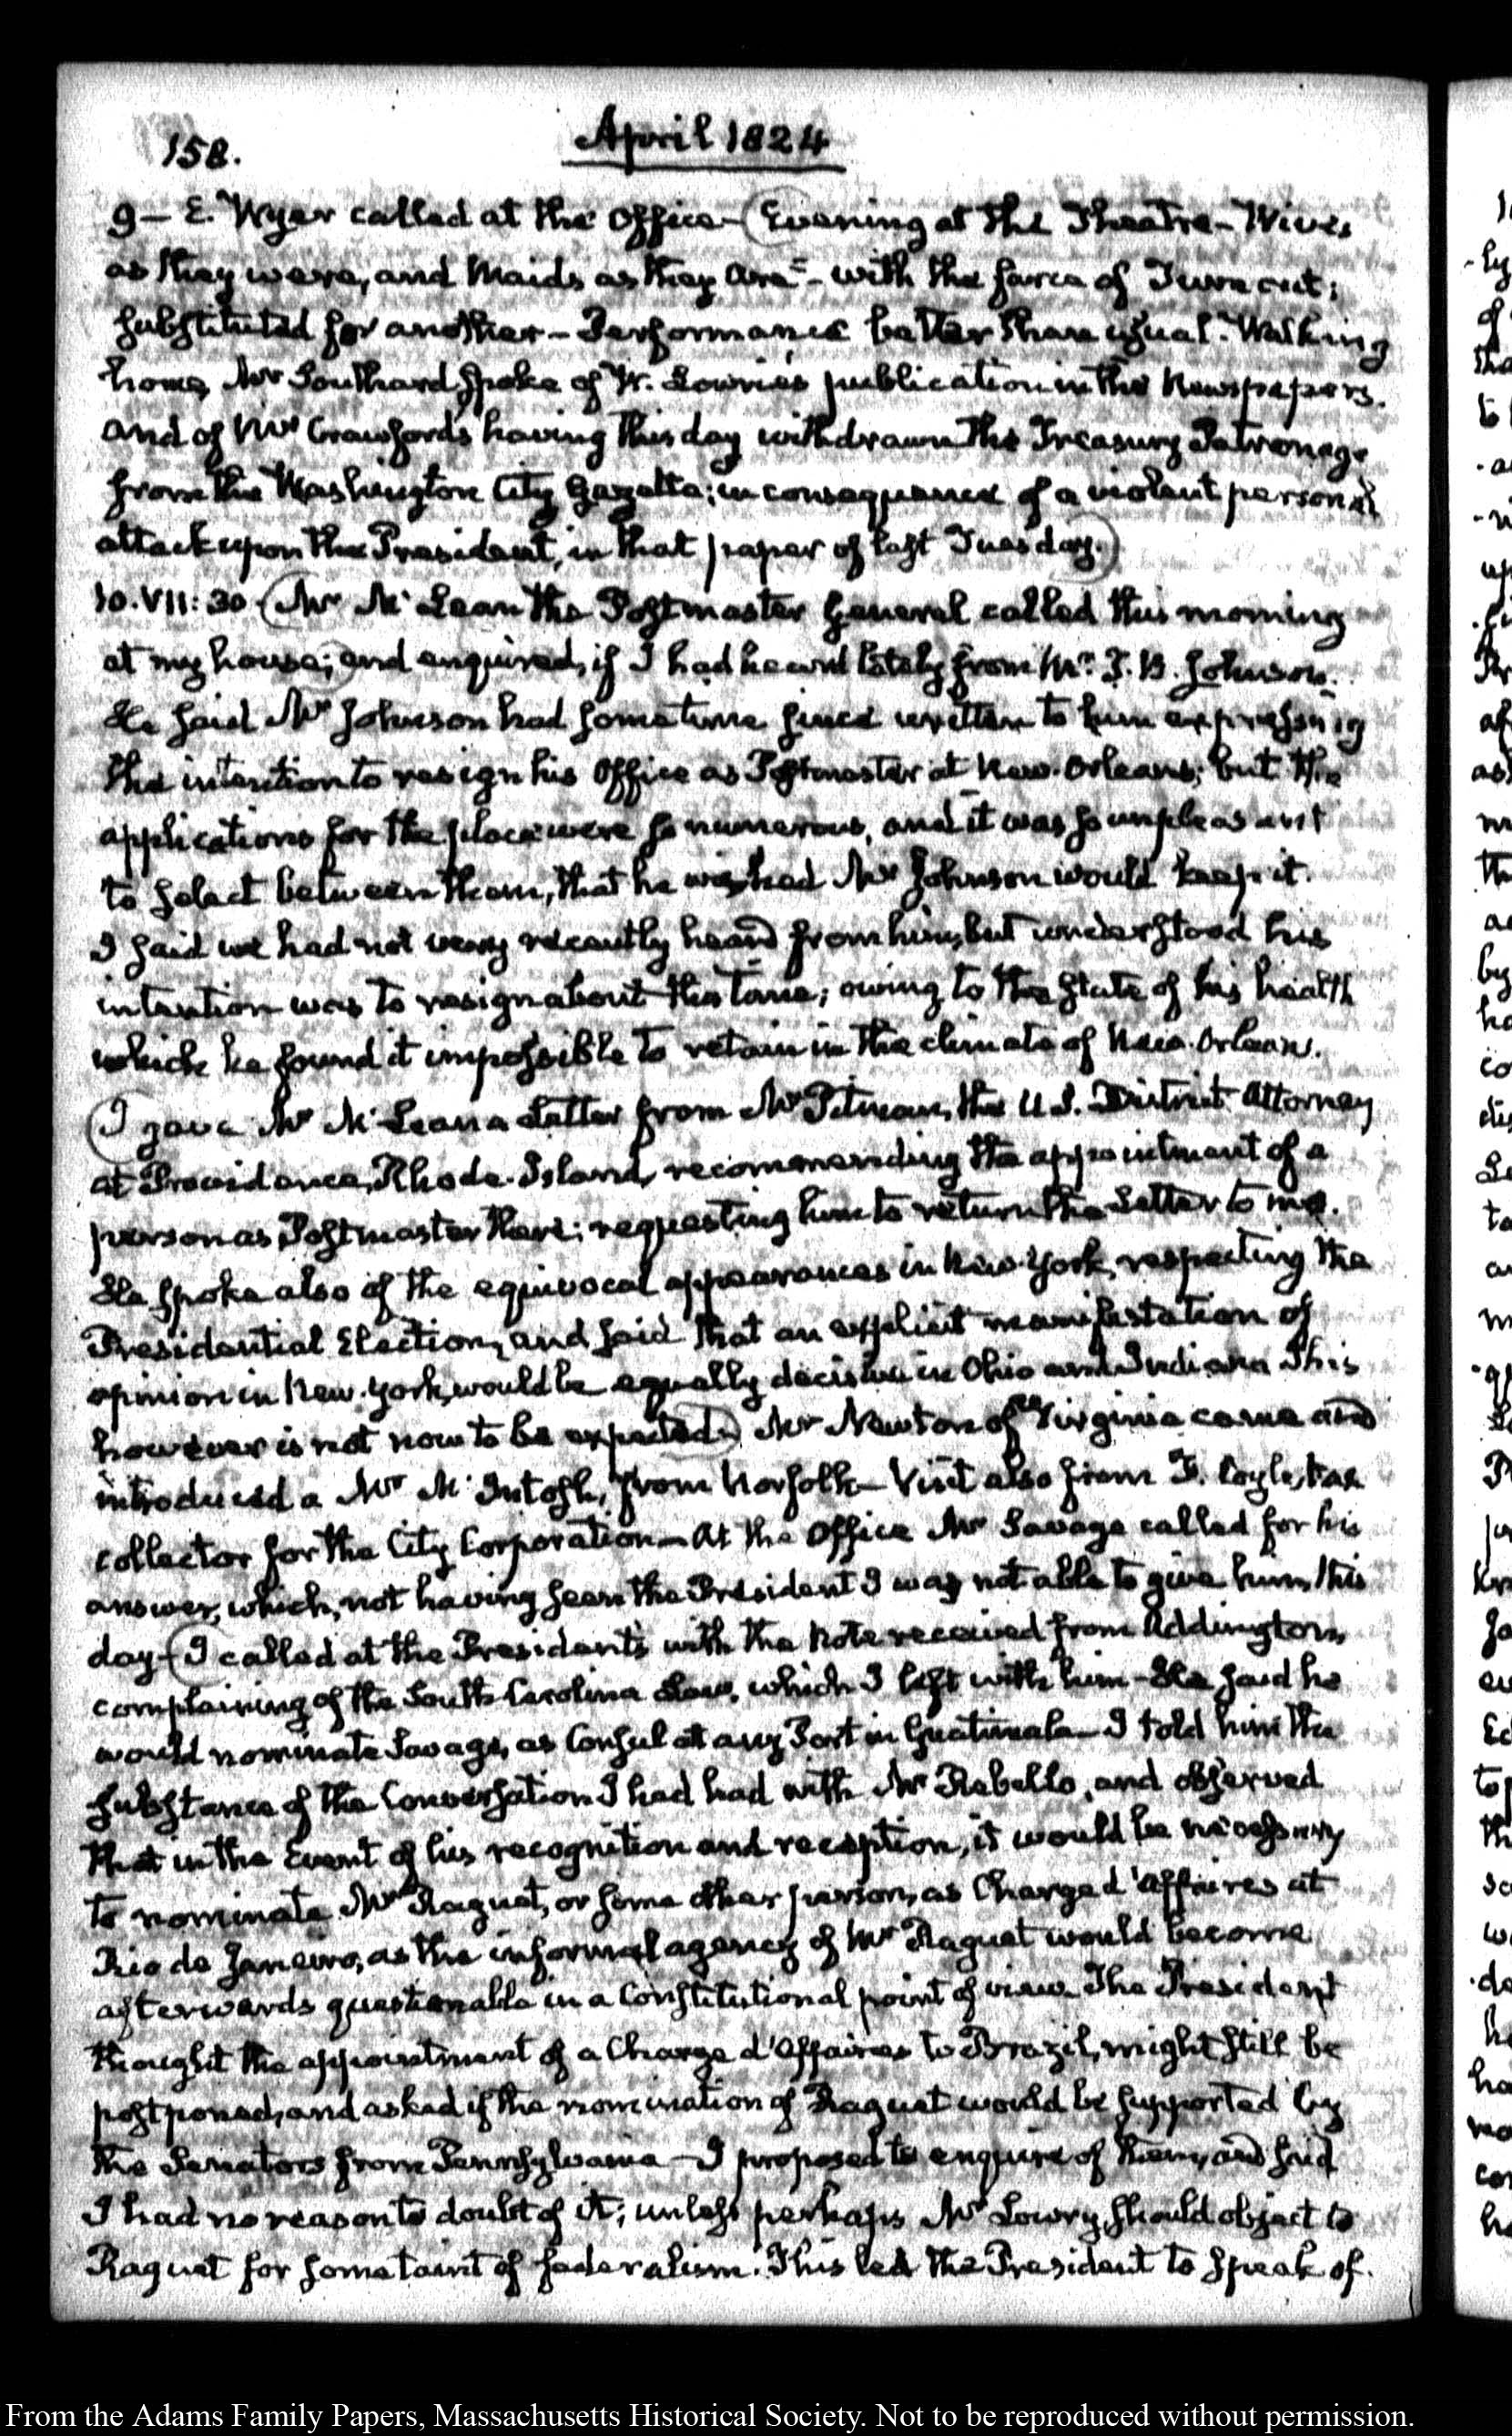 158.
April 1824
9 — E. Wyer called at the Office — (Evening at the Theatre — Wives
as they were, and Maids as they Are — with the farce of Turn out;
substituted for another — Performance better than usual. Walking
home, Mr Southard spoke of W. Lowrie's publication in the Newspapers.
and of Mr Crawford's having this day withdrawn the Treasury Patronage
from the Washington City Gazette; in consequence of a violent personal
attack upon the President, in that paper of last Tuesday.)
10. VII:30 (Mr McLean the Postmaster General called this morning
at my house;) and enquired, if I had heard lately from Mr T. B. Johnson.
He said Mr Johnson had some time since written to him expressing
the intention to resign his Office as Postmaster at New-Orleans; but the
applications for the place were so numerous, and it was so unpleasant
to select between them, that he wished Mr Johnson would keep it.
I said we had not very recently heard from him, but understood his
intention was to resign about this time; owing to the state of his health
which he found it impossible to retain in the climate of New-Orleans.
(I gave Mr McLean a Letter from Mr Pitman, the U.S. District Attorney
at Providence, Rhode-Island, recommending the appointment of a
person as Postmaster there; requesting him to return the Letter to me.
He spoke also of the equivocal appearances in New-York, respecting the
Presidential Election, and said that an explicit manifestation of
opinion in New-York, would be equally decisive in Ohio and Indiana This
however is not now to be expected.) Mr Newton of Virginia came and
introduced a Mr McIntosh, from Norfolk — Visit also from F. Coyle, tax
collector for the City Corporation — At the Office Mr Savage called for his
answer, which, not having seen the President I was not able to give him this
day — (I called at the President's with the Note received from Addington,
complaining of the South-Carolina Law, which I left with him — He said he
would nominate Savage, as Consul at any Port in Guatimala — I told him the
substance of the Conversation I had had with Mr Rebello, and observed
that in the Event of his recognition and reception, it would be necessary
to nominate Mr Raguet, or some other person, as Chargé d'Affaires at
Rio de Janeiro, as the informal agency of Mr Raguet would become
afterwards questionable in a Constitutional point of view. The President
thought the appointment of a Chargé d'Affaires to Brazil, might still be
postponed, and asked if the nomination of Raguet would be supported by
the Senators from Pennsylvania — I proposed to enquire of them, and said
I had no reason to doubt of it; unless perhaps Mr Lowry should object to
Raguet for some taint of federalism. This led the President to speak of.
From the Adams Family Papers, Massachusetts Historical Society. Not to be reproduced without permission.